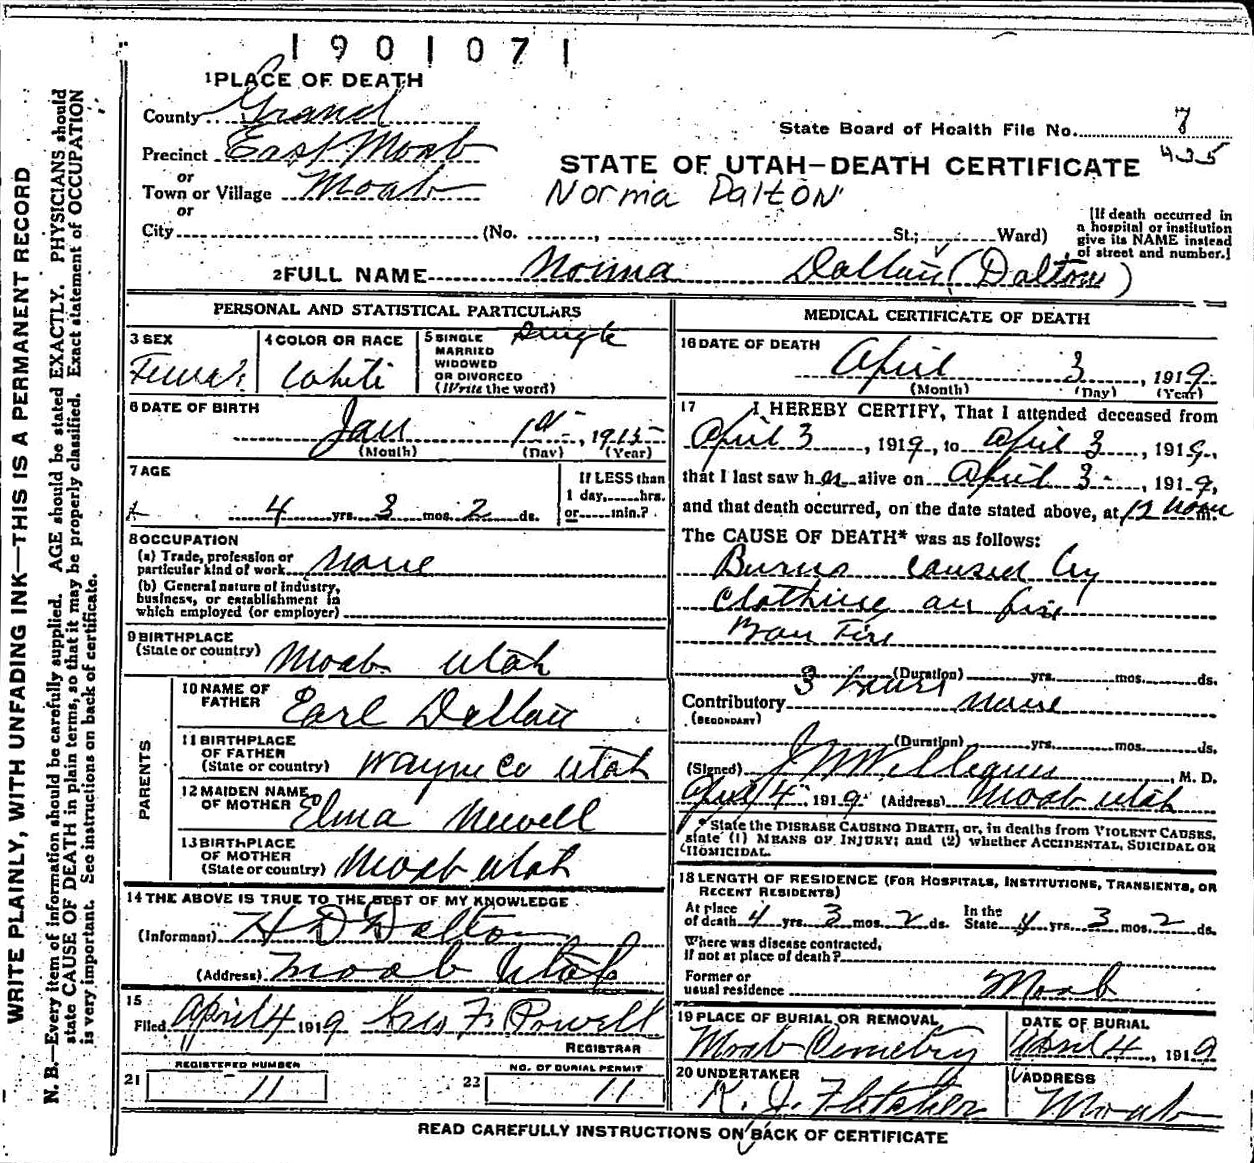 1901071
1 PLACE OF DEATH
County Grand
State Board of Health File No. 7
435
Precinct East Moab
or
Town or Village Moab
or
STATE OF UTAH—DEATH CERTIFICATE
Norma Dalton
City (No. , St.; Ward)
[If death occurred in
a hospital or institution
give its NAME instead
of street and number.]
2 FULL NAME Norma Dalton (Dalton)
PERSONAL AND STATISTICAL PARTICULARS
3 SEX
Female
4 COLOR OR RACE
White
5 SINGLE
MARRIED
WIDOWED
OR DIVORCED
(Write the word)
Single
6 DATE OF BIRTH
Jan 1st, 1915
(Month) (Day) (Year)
7 AGE
4 yrs. 3 mos. 2 ds.
If LESS than
1 day, hrs.
or min.?
8 OCCUPATION
(a) Trade, profession or
particular kind of work None
(b) General nature of industry,
business, or establishment in
which employed (or employer)
9 BIRTHPLACE
(State or country) Moab Utah
PARENTS
10 NAME OF
FATHER Earl Dalton
11 BIRTHPLACE
OF FATHER
(State or country) Wayne Co Utah
12 MAIDEN NAME
OF MOTHER Elma Newell
13 BIRTHPLACE
OF MOTHER
(State or country) Moab Utah
14 THE ABOVE IS TRUE TO THE BEST OF MY KNOWLEDGE
(Informant) H D Dalton
(Address) Moab Utah
15
Filed April 4 1919 Geo F. Powell
REGISTRAR
21 REGISTERED NUMBER
11
22 NO. OF BURIAL PERMIT
11
MEDICAL CERTIFICATE OF DEATH
16 DATE OF DEATH
April 3, 1919
(Month) (Day) (Year)
17 I HEREBY CERTIFY, That I attended deceased from
April 3, 1919, to April 3, 1919,
that I last saw her alive on April 3, 1919,
and that death occurred, on the date stated above, at 12 noon m.
The CAUSE OF DEATH* was as follows:
Burns caused by
Clothing on fire
Bon Fire
3 hours (Duration) yrs. mos. ds.
Contributory None
(SECONDARY)
(Duration) yrs. mos. ds.
(Signed) J W Williams, M. D.
April 4, 1919 (Address) Moab Utah
* State the DISEASE CAUSING DEATH, or, in deaths from VIOLENT CAUSES,
state (1) MEANS OF INJURY; and (2) whether ACCIDENTAL, SUICIDAL OR
HOMICIDAL.
18 LENGTH OF RESIDENCE (FOR HOSPITALS, INSTITUTIONS, TRANSIENTS, OR
RECENT RESIDENTS)
At place
of death 4 yrs. 3 mos. 2 ds.
In the
State 4 yrs. 3 mos. 2 ds.
Where was disease contracted,
If not at place of death?
Former or
usual residence Moab
19 PLACE OF BURIAL OR REMOVAL
Moab Cemetery
DATE OF BURIAL
April 4, 1919
20 UNDERTAKER
K. J. Fletcher
ADDRESS
Moab
READ CAREFULLY INSTRUCTIONS ON BACK OF CERTIFICATE
WRITE PLAINLY, WITH UNFADING INK—THIS IS A PERMANENT RECORD
N. B.—Every item of information should be carefully supplied. AGE should be stated EXACTLY. PHYSICIANS should
state CAUSE OF DEATH in plain terms, so that it may be properly classified. Exact statement of OCCUPATION
is very important. See instructions on back of certificate.